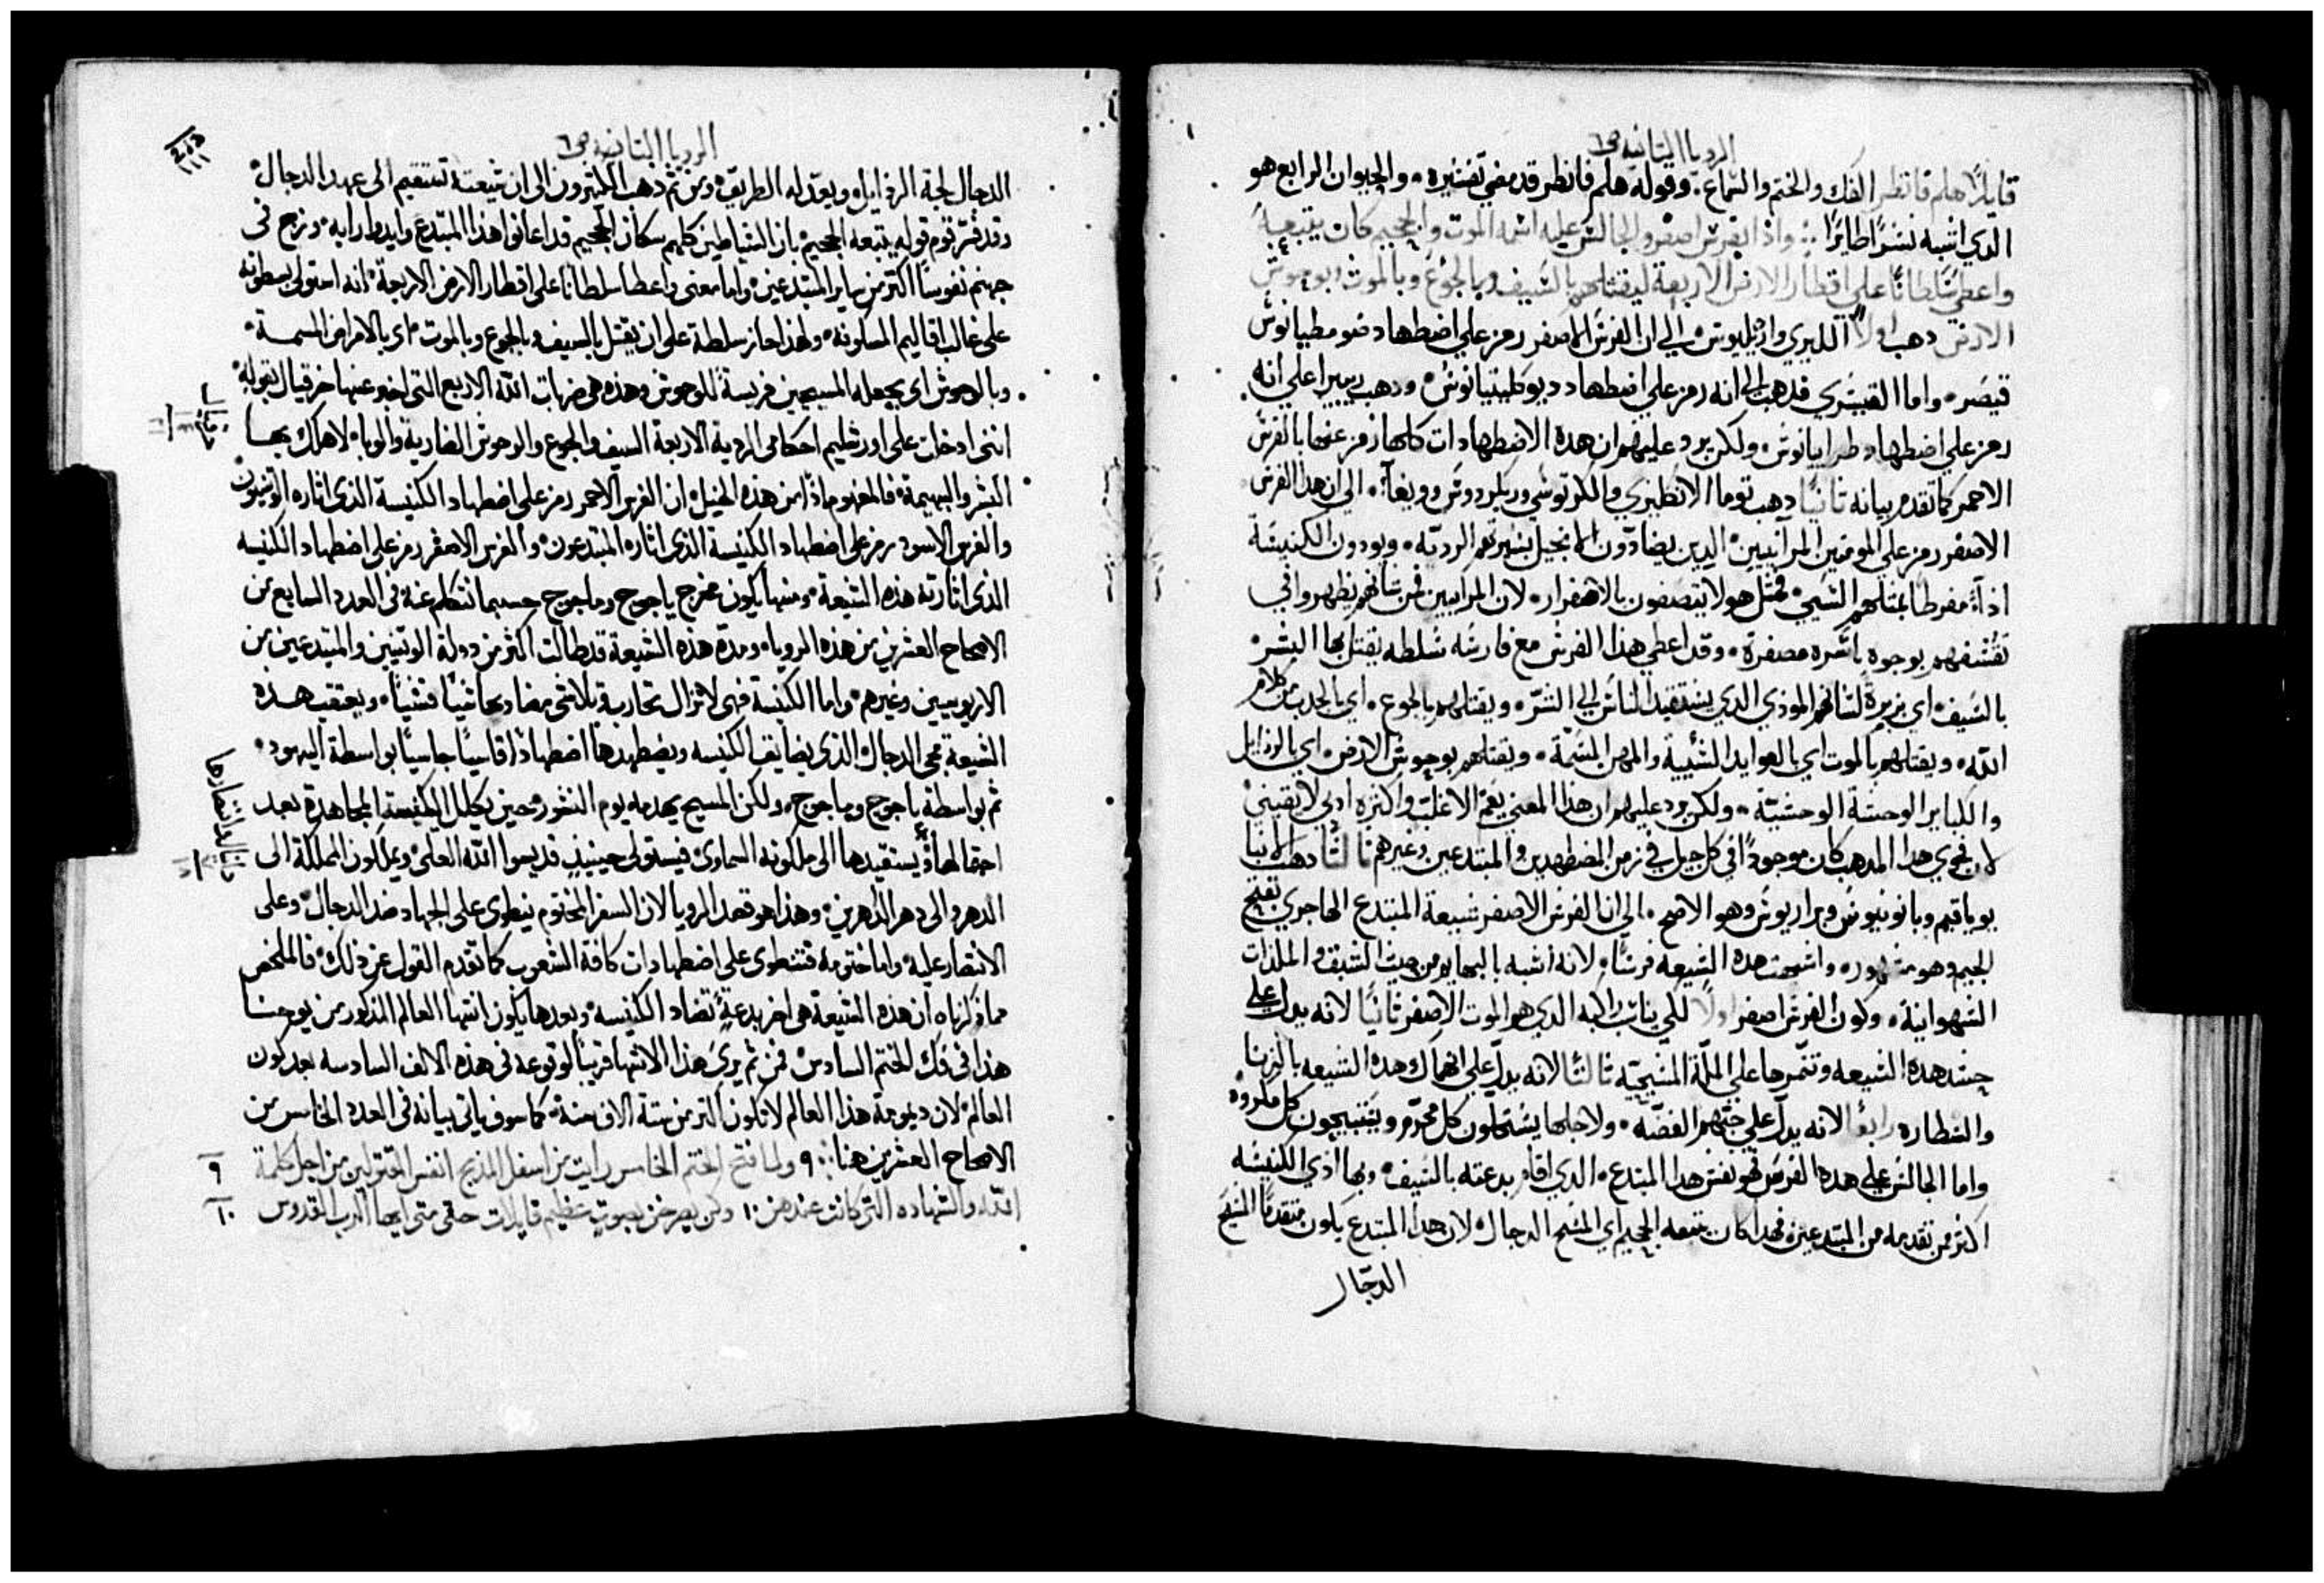 الرويا الثانيه ص٦
قايلاً هلم فانظر الفك والختم والسماع. وقوله هلم فانظر قد مضي تفسيره. والحيوان الرابع هو
الدي اشبه نسراً طايراً. واذا بفرس اصفر والجالس عليه اسمه الموت والجحيم كان يتبعه
واعطي سلطاناً علي اقطار الارض الاربعة ليقتلهم بالسيف وبالجوع وبالموت وبوحوش
الارض دهب اولاً الليري الي ان الفرس الاصفر رمز علي اضطهاد ضومطيانوس
قيصر. واما القيسري فدهب الي انه رمز علي اضطهاد ديوكليتيانوس. ودهب ريبيرا علي انه
رمز علي اضطهاد طرايانوس. ولكن يرد عليهم ان هده الاضطهادات كلها رمز عنها بالفرس
الاحمر كما تقدم بيانه ثانياً دهب توما الانكليزي والكرتوسي الي ان هدا الفرس
الاصفر رمز علي المومنين المرآييين الدين يضادون الانجيل بسيرتهم الرديه. ويودون الكنيسة
اداءً مفرطاً بمثلهم السيي. فمثل هولا يتصفون بالاصفرار. لان المراييين من شانهم يظهروا في
تقشفهم بوجوه باسره مصفرة. وقد اعطي هدا الفرس مع فارسه سلطه يقتل بها البشر
بالسيف اي بزيرة لسانهم المودي الدي يستقيد الناس الي الشر. ويقتلهم بالجوع. اي بالجدب من كلام
الله. ويقتلهم بالموت اي بالعوايد السيية والمهن السمة. ويقتلهم بوحوش الارض. اي بالردايل
والكباير الوحشة الوحشية. ولكن يرد عليهم ان هدا المعني يعم الاغلب واكثره ادبي لا يقيني
لان فحوي هدا المدهب كان موجوداً في كل جيل في زمن المضطهدين والمبتدعين وغيرهم ثالثاً دهب
وهو الاصح. الي ان الفرس الاصفر شيعة المبتدع الهاجري بفتح
الجيم وهو مشهور. واشبهت هده الشيعه فرساً. لانه اشبه بالبهايم من حيث الشبق والملدات
الشهوانية. وكون الفرس اصفر اولاً لكي يناسب راكبه الدي هو الموت الاصفر ثانياً لانه يدل علي
حسد هده الشيعه وتنمرها علي الملة المسيحيه ثالثاً لانه يدل علي انهماك هده الشيعه بالزنا
والشطاره رابعاً لانه يدل علي حبهم الفضه. ولاجلها يستحلون كل محرم ويستبيحون كل مكروه
واما الجالس علي هدا الفرس فهو نفس هدا المبتدع. الدي اقام بدعته بالسيف. وبها ادي الكنيسه
اكثر من تقدمه من المبتدعين. فهدا كان يتبعه الجحيم اي المسيح الدجال. لان هدا المبتدع يكون متقدماً المسيح
الدجال
الرويا الثانيه ص٦
الدجال لجة الرذايل. ويعد له الطريق. ومن ثم ذهب الكثيرون الى ان شيعته تستقيم الى عهد الدجال.
وقد فسر قوم قوله يتبعه الجحيم. بان الشياطين كلهم سكان الجحيم قد اعانوا هذا المبتدع وايدوا رايه. وزج في
جهنم نفوساً اكثر من ساير المبتدعين. واما معنى واعطا سلطاناً على اقطار الارض الاربعة. انه استولى بسطوته
على غالب اقاليم المسكونه. ولهذا حاز سلطة على ان يقتل بالسيف وبالجوع وبالموت. اي بالامراض المسمة.
وبالوحوش اي بجعله المسيحيين فريسة للوحوش وهذه هي ضربات الله الاربع التي اخبر عنها حزقيال بقوله
اننى ادخلت على اورشليم احكامى الردية الاربعة السيف والجوع والوحوش الضارية والوبا. لاهلك بها
البشر والبهيمة. فالمفهوم اذاً من هذه الخيل. ان الفرس الاحمر رمز على اضطهاد الكنيسة الذى اثاره الوثنيون
والفرس الاسود رمز على اضطهاد الكنيسة الذى اثاره المبتدعون. والفرس الاصفر رمز على اضطهاد الكنيسه
الذى اثارته هذه الشيعة. ومنها يكون مخرج ياجوج وماجوج حسبما نتكلم عنه في العدد السابع من
الاصحاح العشرين من هذه الرويا. ومدة هذه الشيعة قد طالت اكثر من دولة الوثنيين والمبتدعين من
الاريوسيين وغيرهم. واما الكنيسة فهي لا تزال تحاربه شياً فشياً. ويعتقب هذه
الشيعة مجي الدجال. الذى يضايق الكنيسه ويضطهدها اضطهاذاً قاسياً جاسياً بواسطة اليهود.
ثم بواسطة ياجوج وماجوج. ولكن المسيح يهدمه يوم النشور. حين يكلل الكنيسة المجاهدة بعد
احتمالها ويستقيدها الى ملكوته السماوى. فيستولى حينيذٍ قديسوا الله العلي. ويملكون المملكة الى
الدهر والى دهر الداهرين. وهذا هو قصد الرويا لان السفر المختوم ينطوى على الجهاد ضد الدجال. وعلى
الانتصار عليه. واما ختومه فتنطوى على اضطهادات كافة الشعوب كما تقدم القول عن ذلك. فالملخص
مما ذكرناه ان هذه الشيعة هي اخر بدعةٍ تضاد الكنيسه. وبعدها يكون انتها العالم المذكور من يوحنا
هذا فى فك الختم السادس. فمن ثم يرى هذا الانتها قريباً لوقوعه فى هذه الالف السادسه بعد كون
العالم. لان ديمومة هذا العالم لا تكون اكثر من ستة الاف سنة. كما سوف ياتى بيانه فى العدد الخامس من
الاصحاح العشرين هنا. ٩ ولما فتح الختم الخامس رايت من اسفل المذبح انفس المقتولين من اجل كلمة
الله والشهاده التى كانت عندهن. ١٠ وكن يصرخن بصوتٍ عظيم قايلات حتى متى ايها الرب القدوس
٩
١٠